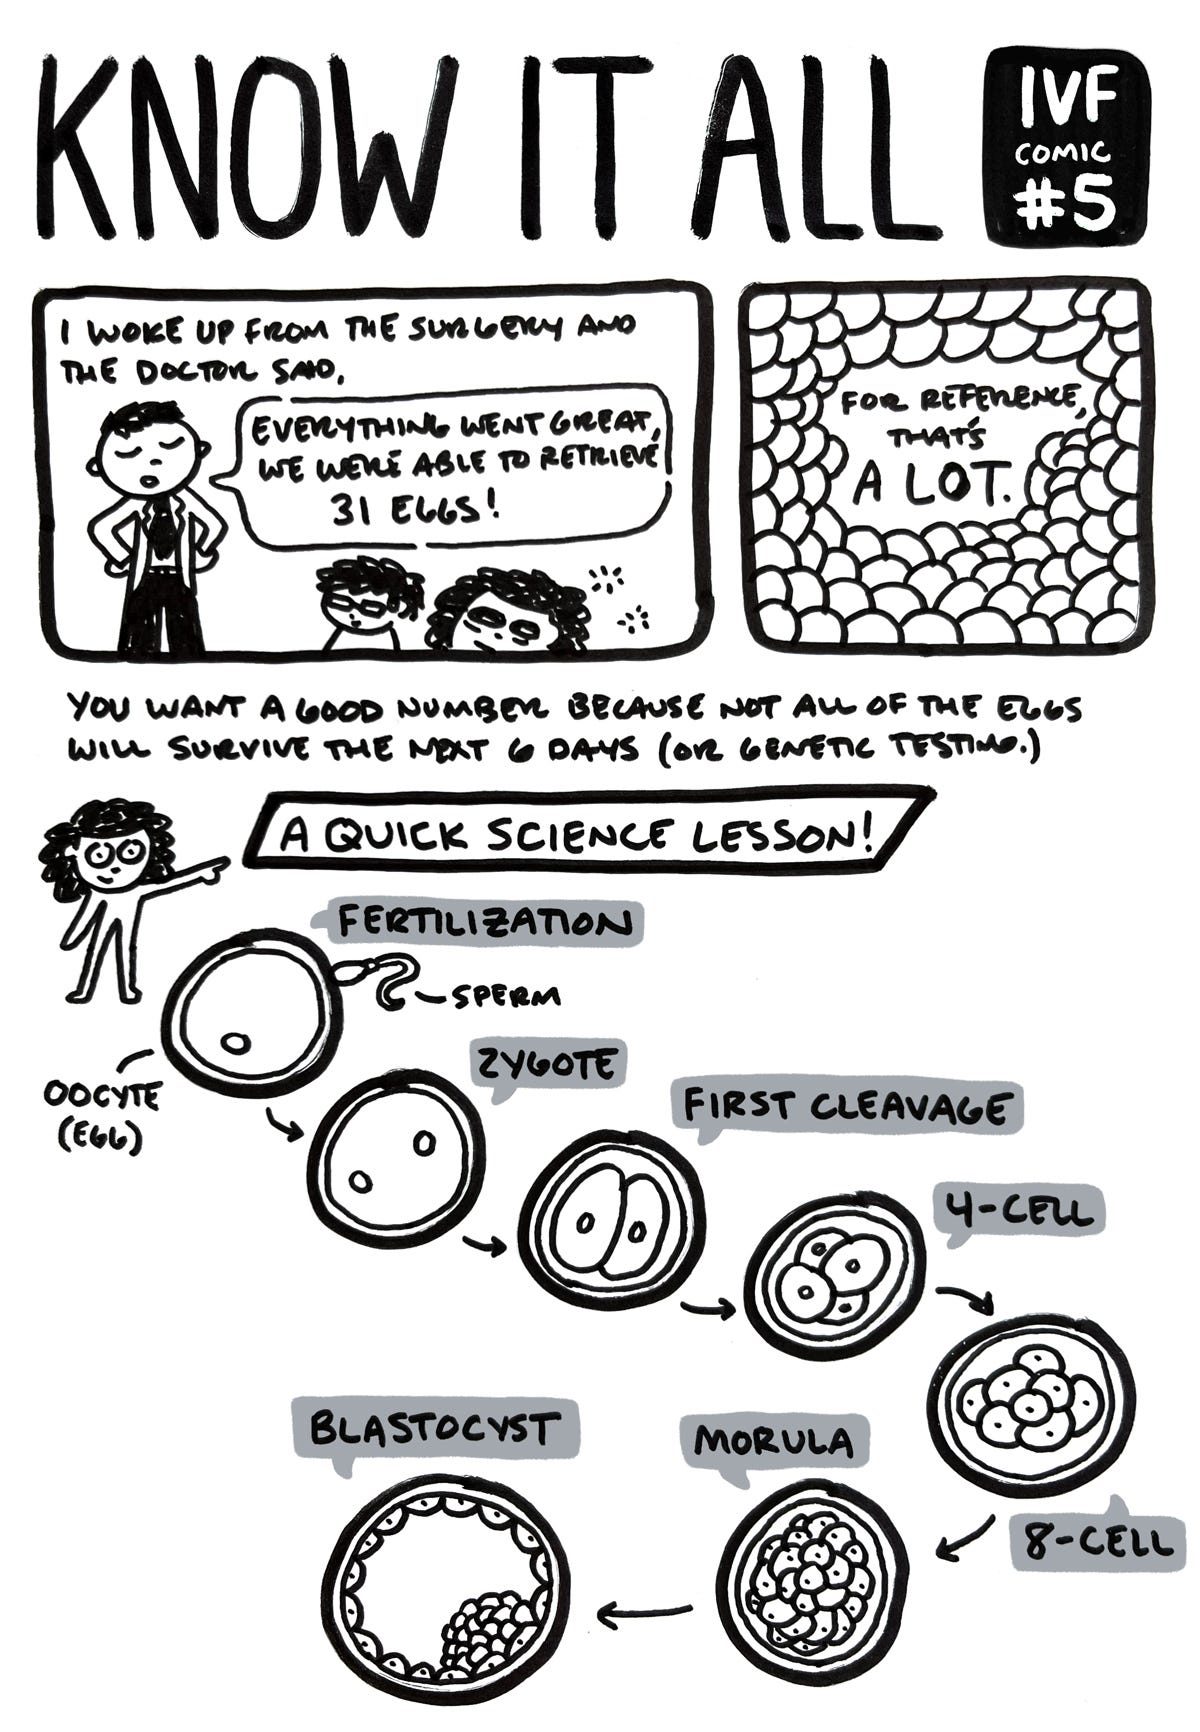 KNOW IT ALL
IVF
COMIC
#5
I WOKE UP FROM THE SURGERY AND
THE DOCTOR SAID,
EVERYTHING WENT GREAT,
WE WERE ABLE TO RETRIEVE
31 EGGS!
FOR REFERENCE,
THAT'S
A LOT.
YOU WANT A GOOD NUMBER BECAUSE NOT ALL OF THE EGGS
WILL SURVIVE THE NEXT 6 DAYS (OR GENETIC TESTING.)
A QUICK SCIENCE LESSON!
FERTILIZATION
SPERM
OOCYTE
(EGG)
ZYGOTE
FIRST CLEAVAGE
4-CELL
8-CELL
MORULA
BLASTOCYST